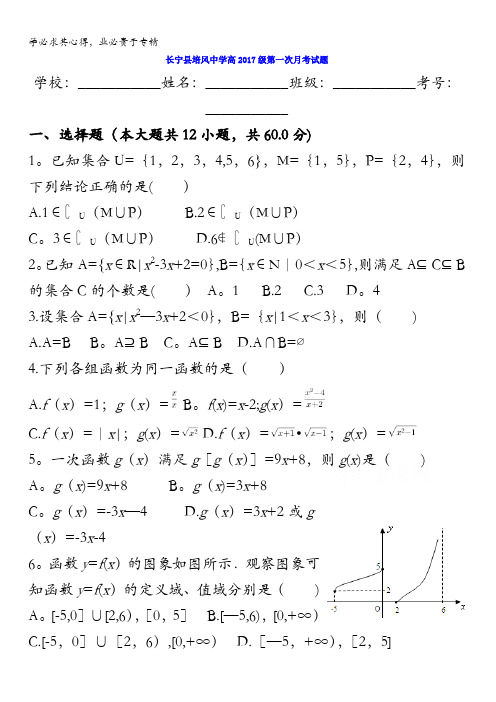 学必求其心得，业必贵于专精
长宁县培风中学高2017级第一次月考试题
学校：___________姓名：___________班级：___________考号：
___________
一、选择题（本大题共12小题，共60.0分)
1。已知集合U=｛1，2，3，4,5，6}，M=｛1，5｝，P=｛2，4｝，则
下列结论正确的是(　　)
A.1∈∁U（M∪P） B.2∈∁U（M∪P）
C。3∈∁U（M∪P） D.6∉∁U(M∪P）
2。已知A={x∈R|x²-3x+2=0｝,B={x∈N｜0＜x＜5},则满足A⊆C⊆B
的集合C的个数是(　　) A。1 B.2 C.3 D。4
3.设集合A={x|x²—3x+2＜0｝，B=｛x|1＜x＜3｝，则（　　)
A.A=B B。A⊇B C。A⊆B D.A∩B=∅
4.下列各组函数为同一函数的是（　　）
A.f（x）=1；g（x）=x/x B。f(x)=x-2;g(x）=(x²−4)/(x+2)
C.f（x）=｜x|；g(x）=√x² D.f（x）=√x+1•√x−1；g（x）=√x²−1
5。一次函数g（x）满足g［g（x）］=9x+8，则g(x)是（　　)
A。g（x)=9x+8 B。g（x)=3x+8
C。g（x）=-3x—4 D.g（x）=3x+2或g
（x）=-3x-4
6。函数y=f(x）的图象如图所示．观察图象可
知函数y=f(x）的定义域、值域分别是（　　)
A。[-5,0］∪[2,6)，［0，5］ B.[—5,6)，[0,+∞）
C.[-5，0］∪［2，6）,[0,+∞） D.［—5，+∞)，［2，5]
y
5
2
-5 O 2 6 x